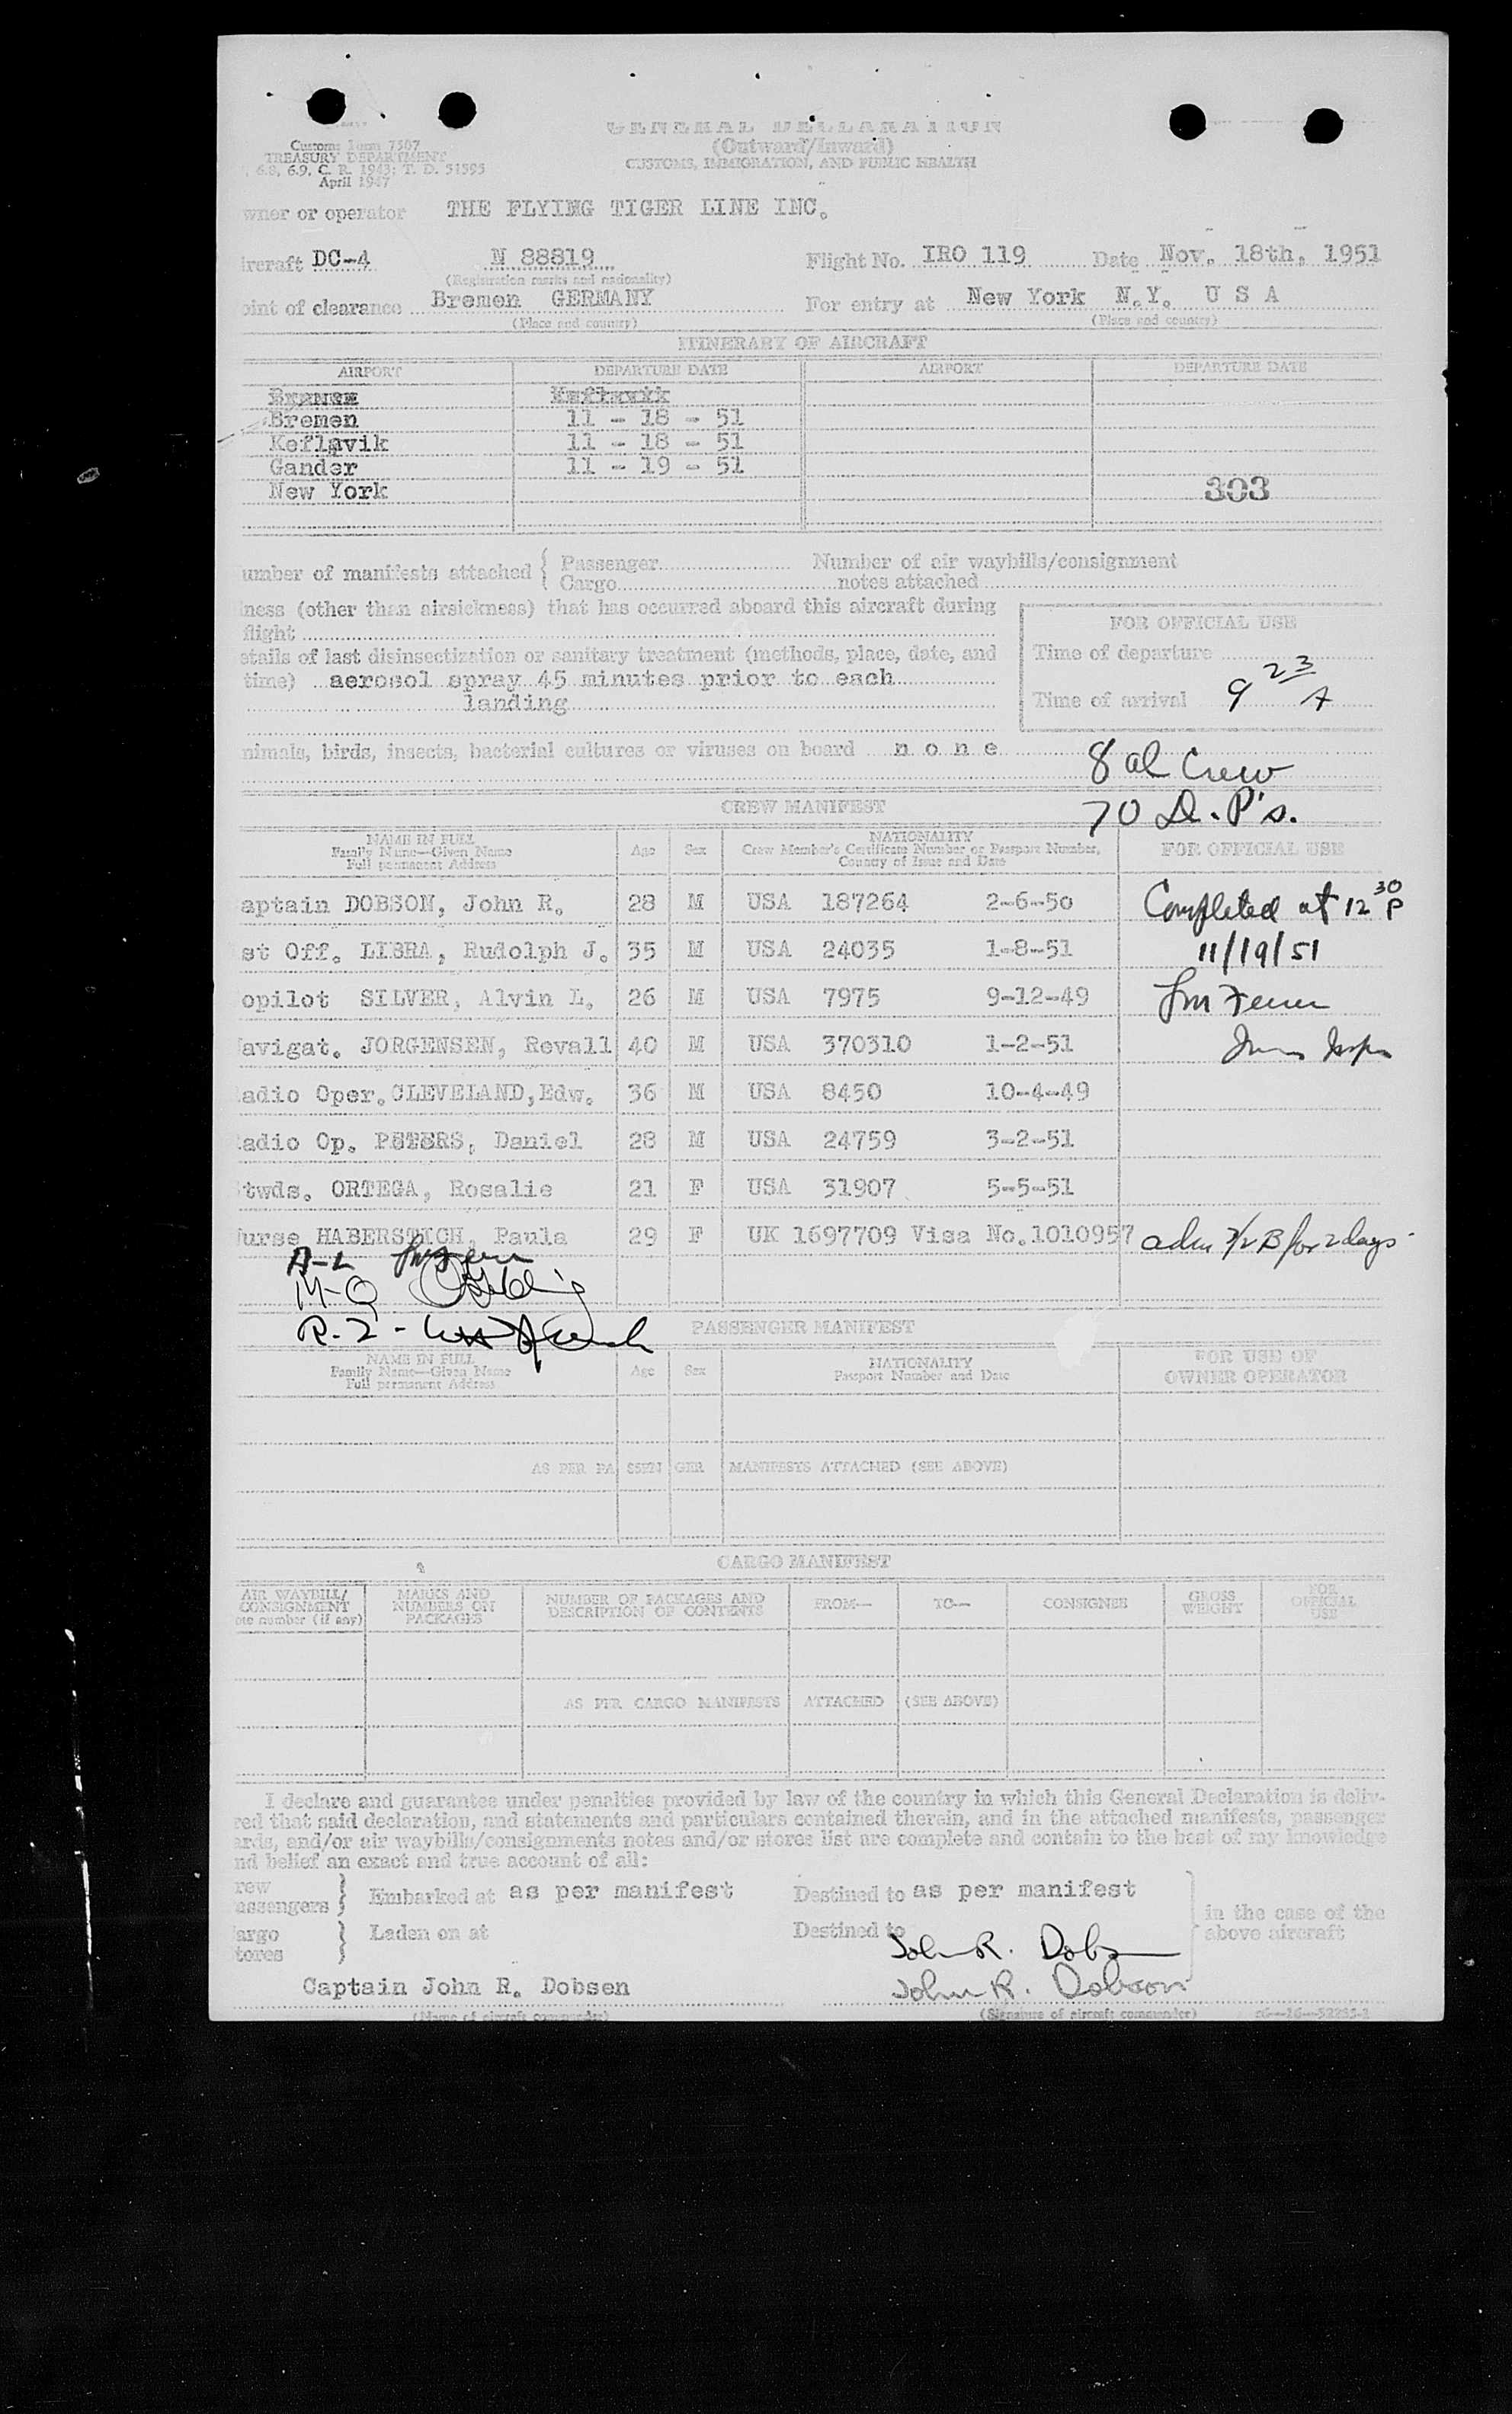 Customs Form 7507
TREASURY DEPARTMENT
, 6.8, 6.9, C. R. 1943; T. D. 51595
April 1947
GENERAL DECLARATION
(Outward/Inward)
CUSTOMS, IMMIGRATION, AND PUBLIC HEALTH
wner or operator THE FLYING TIGER LINE INC.
ircraft DC-4 N 88819 Flight No. IRO 119 Date Nov. 18th, 1951
(Registration marks and nationality)
oint of clearance Bremen GERMANY For entry at New York N.Y. U S A
(Place and country) (Place and country)
ITINERARY OF AIRCRAFT
AIRPORT DEPARTURE DATE AIRPORT DEPARTURE DATE
Keflavik
Bremen 11 - 18 - 51
Keflavik 11 - 18 - 51
Gander 11 - 19 - 51
New York 303
umber of manifests attached { Passenger Number of air waybills/consignment
Cargo notes attached
lness (other than airsickness) that has occurred aboard this aircraft during
flight
FOR OFFICIAL USE
etails of last disinsectization or sanitary treatment (methods, place, date, and Time of departure
time) aerosol spray 45 minutes prior to each
landing Time of arrival 9 23 A
nimals, birds, insects, bacterial cultures or viruses on board n o n e
8 al Crew
CREW MANIFEST
70 D.P's.
NAME IN FULL
Family Name—Given Name
Full permanent Address
Age Sex
NATIONALITY
Crew Member's Certificate Number or Passport Number,
Country of Issue and Date
FOR OFFICIAL USE
aptain DOBSON, John R. 28 M USA 187264 2-6-50 Completed at 12 30 P
st Off. LIBRA, Rudolph J. 35 M USA 24035 1-8-51 11/19/51
opilot SILVER, Alvin L. 26 M USA 7975 9-12-49
avigat. JORGENSEN, Revall 40 M USA 370310 1-2-51
adio Oper. CLEVELAND, Edw. 36 M USA 8450 10-4-49
adio Op. PETERS, Daniel 28 M USA 24759 3-2-51
twds. ORTEGA, Rosalie 21 F USA 31907 5-5-51
urse HABERSTICH, Paula 29 F UK 1697709 Visa No.1010957 adm 3/2 B for 2 days
A-L
M-Q
R-Z -
PASSENGER MANIFEST
NAME IN FULL
Family Name—Given Name
Full permanent Address
Age Sex
NATIONALITY
Passport Number and Date
FOR USE OF
OWNER OPERATOR
AS PER PASSENGER MANIFESTS ATTACHED (SEE ABOVE)
CARGO MANIFEST
AIR WAYBILL/
CONSIGNMENT
ote number (if any)
MARKS AND
NUMBERS ON
PACKAGES
NUMBER OF PACKAGES AND
DESCRIPTION OF CONTENTS
FROM— TO— CONSIGNEE
GROSS
WEIGHT
FOR
OFFICIAL
USE
AS PER CARGO MANIFESTS ATTACHED (SEE ABOVE)
I declare and guarantee under penalties provided by law of the country in which this General Declaration is deliv-
red that said declaration, and statements and particulars contained therein, and in the attached manifests, passenger
ards, and/or air waybills/consignments notes and/or stores list are complete and contain to the best of my knowledge
nd belief an exact and true account of all:
rew
assengers } Embarked at as per manifest Destined to as per manifest
in the case of the
above aircraft
argo
tores } Laden on at Destined to
John R. Dobson
Captain John R. Dobsen John R. Dobson
(Name of aircraft commander) (Signature of aircraft commander) 16—52255-1